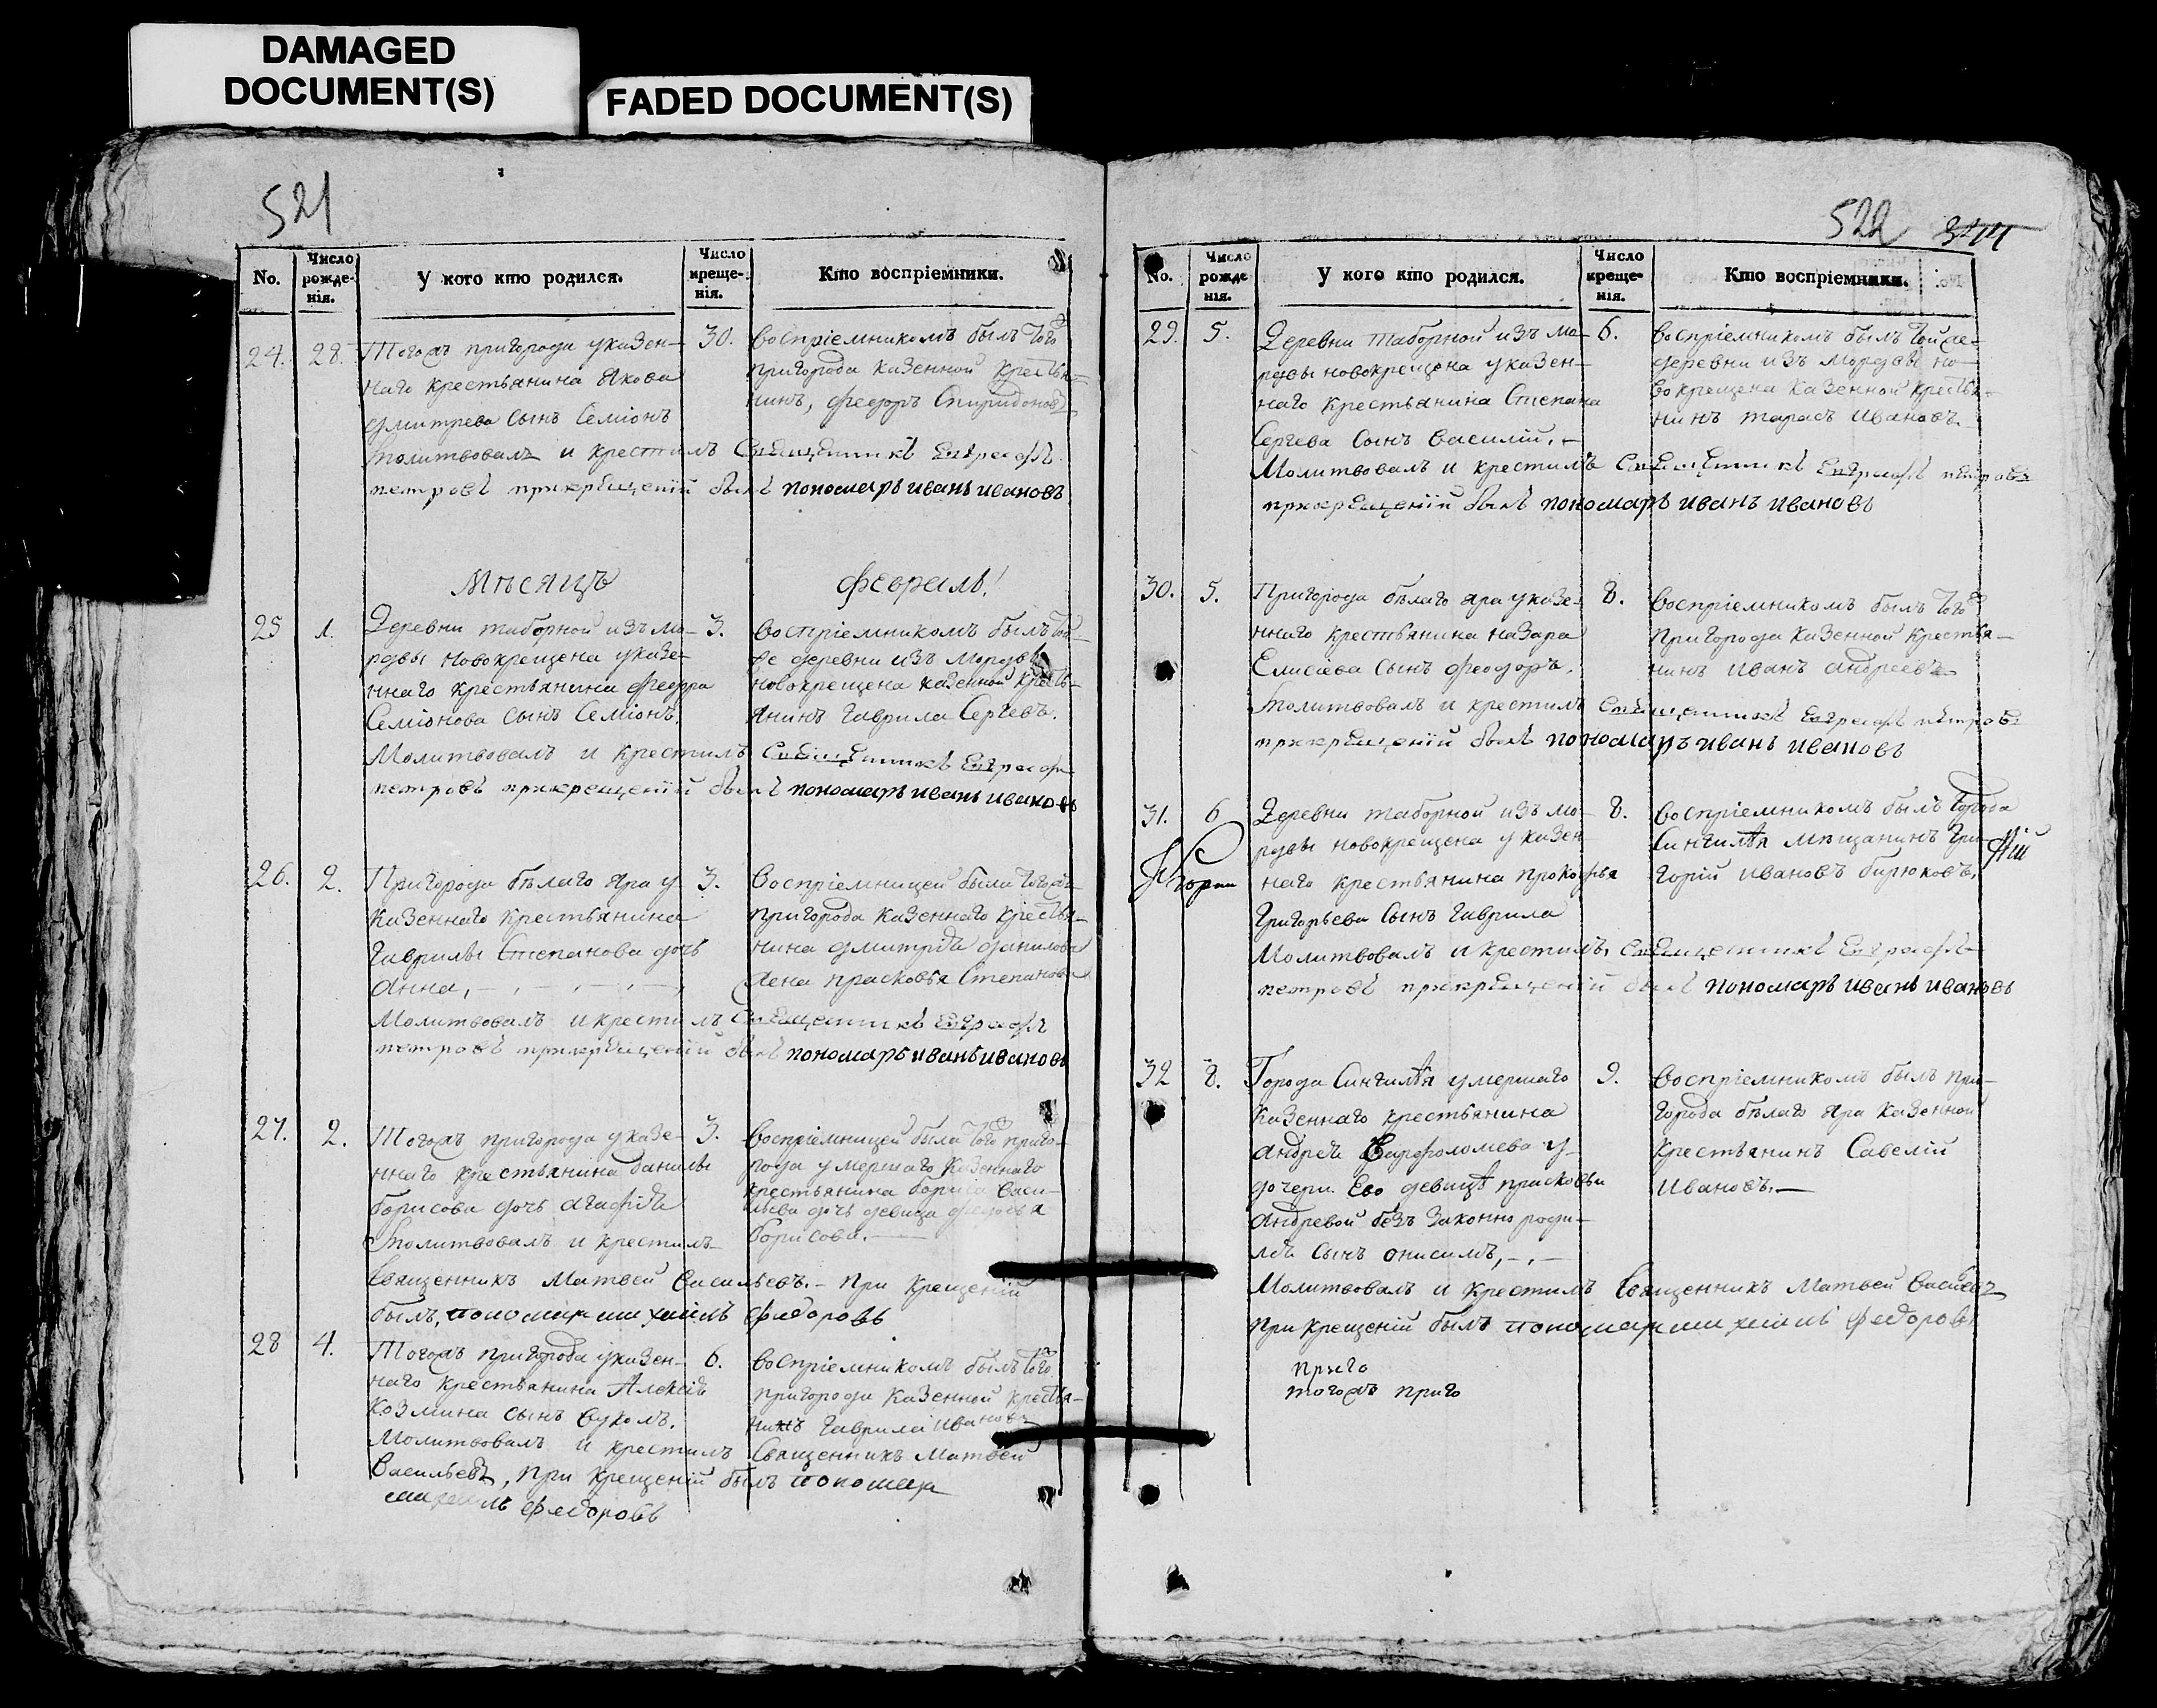 DAMAGED
DOCUMENT(S)
FADED DOCUMENT(S)
521
No.
Число рожде-нія.
У кого кто родился.
Число креще-нія.
Кто воспріемники.
24. 28. Тогожъ пригорода указен-
наго крестьянина Якова
дмитрева сынъ Семіонъ
30. воспріемникомъ былъ того
пригорода казенной крестья-
нинъ, Феодоръ Спиридоновъ
Молитвовалъ и крестилъ Священникъ Евграфъ
петровъ прикрещеніи былъ пономарь иванъ ивановъ
Мѣсяцъ Февраль!
25 1. Деревни таборной изъ мо-
рдвы новокрещена указе-
ннаго крестьянина Феодора
Семіонова сынъ Семіонъ.
3. воспріемникомъ былъ той-
же деревни изъ Мордвы
новокрещена казенной кресть-
янинъ Гаврила Сергевъ.
Молитвовалъ и крестилъ Священникъ Евграфъ
петровъ прикрещеніи былъ пономарь иванъ ивановъ
26. 2. Пригорода бѣлаго Яра у
казеннаго крестьянина
Гаврилы Степанова дочь
Анна,
3. Воспріемницей была тогожъ
пригорода казеннаго крестья-
нина дмитрія данилова
жена прасковья Степанова
Молитвовалъ и крестилъ Священникъ Евграфъ
петровъ прикрещеніи былъ пономарь иванъ ивановъ
27. 2. Тогожъ пригорода указе-
ннаго крестьянина данилы
борисова дочь агафія
3. воспріемницей была того приго-
рода умершаго казеннаго
крестьянина бориса васи-
льева дочь девица
борисова.
Молитвовалъ и крестилъ
Священникъ Матвей Васильевъ. - При крещеніи
былъ, пономарь михаилъ Федоровъ
28 4. Тогожъ пригорода указен-
наго крестьянина Алексія
Козмина сынъ вуколъ.
6. воспріемникомъ былъ того
пригорода казенной крестья-
нинъ Гаврила ивановъ
Молитвовалъ и крестилъ Священникъ Матвей
Васильевъ, при крещеніи былъ пономар
михаилъ Федоровъ
522 344
No.
Число рожде нія.
У кого кто родился.
Число креще-нія.
Кто воспріемники.
29. 5. Деревни таборной изъ мо-
рдвы новокрещена указен-
наго крестьянина Степана
Сергева сынъ василій. -
6. воспріемникомъ былъ тойже
деревни изъ мордвы но-
вокрещена казенной крестья-
нинъ тарасъ ивановъ.
Молитвовалъ и крестилъ Священникъ Евграфъ петровъ
прикрещеніи былъ пономарь иванъ ивановъ
30. 5. Пригорода бѣлаго яра указе-
ннаго крестьянина назара
Елисѣева сынъ Феодоръ.
8. воспріемникомъ былъ того
пригорода казенной крестья-
нинъ иванъ андреевъ
Молитвовалъ и крестилъ Священникъ Евграфъ петровъ
прикрещеніи былъ пономарь иванъ ивановъ
31. 6 Деревни таборной изъ мо-
рдвы новокрещена указен
наго крестьянина прокофья
Григорьева сынъ гаврила
8. воспріемникомъ былъ города
Сингилѣя мѣщанинъ Гри-
горій ивановъ бирюковъ.
Молитвовалъ и крестилъ, Священникъ Евграфъ
петровъ прикрещеніи былъ пономарь иванъ ивановъ
32 8. Города Сингилѣя умершаго
казеннаго крестьянина
андрея Варфоломева у
дочери Ево девицѣ прасковьи
андревой безъ законно роди-
лся сынъ онисимъ,
9. воспріемникомъ былъ при-
города бѣлаго яра казенной
крестьянинъ Савелій
ивановъ. —
Молитвовалъ и крестилъ Священникъ Матвей Васильевъ
При крещеніи былъ пономар михаилъ Федоровъ
приго
тогожъ приго